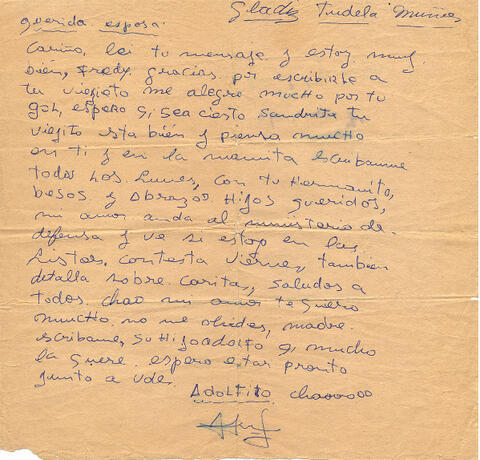 Gladys Tudela Muñoz
querida esposa.
Cariño, leí tu mensaje y estoy muy
bien, Fredy gracias por escribirle a
tu viejito me alegre mucho por tu
gol, espero q sea cierto Sandrita tu
viejito esta bién y piensa mucho
en ti y en la mamita escribanme
todos los lunes, con tu Hermanito,
besos y Abrazos Hijos queridos,
mi amor anda al ministerio de
defensa y ve si estoy en las
Listas, contesta Viernes, tambien
detalla sobre carita, saludos a
todos. chao mi amor te quero
mucho no me olvides, madre
escribame, su Hijo adolfo q mucho
la quere. espero estar pronto
junto a Uds.
ADOLFITO chaooooo